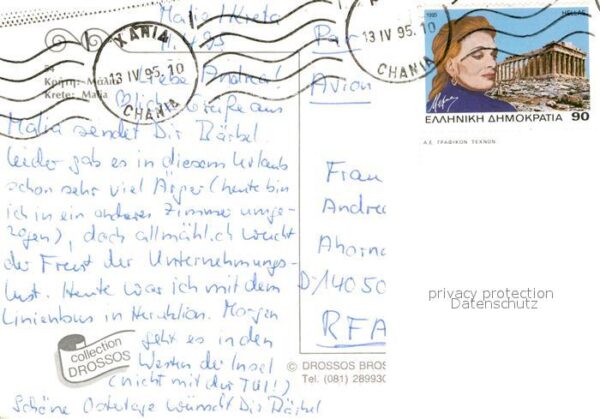 Malia / Kreta
11.4.95
Liebe Andrea!
Viele Grüße aus
Malia sendet Dir Bärbel.
Leider gab es in diesem Urlaub
schon sehr viel Ärger (heute bin
ich in ein anderes Zimmer umge-
zogen), doch allmählich weicht
der Frust der Unternehmungs-
lust. Heute war ich mit dem
Linienbus in Heraklion. Morgen
geht es in den
Westen der Insel
(nicht mit der TUI!)
Schöne Ostertage wünscht Dir Bärbel
Κρήτη: Μάλια
Krete: Malia
collection
DROSSOS
ΧΑΝΙΑ
13 IV 95. 10
CHANIA
ΧΑΝΙΑ
13 IV 95. 10
CHANIA
Par
Avion
Frau
Andrea
Ahorn
D-14050
RFA
© DROSSOS BROS
Tel. (081) 289930
1995
HELLAS
ΕΛΛΗΝΙΚΗ ΔΗΜΟΚΡΑΤΙΑ 90
Α.Ε. ΓΡΑΦΙΚΩΝ ΤΕΧΝΩΝ
privacy protection
Datenschutz